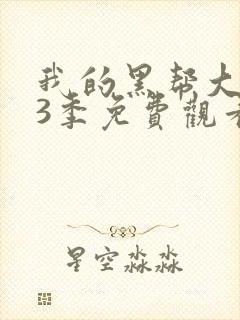 我的黑帮大
3季免費觀看
星空淼淼